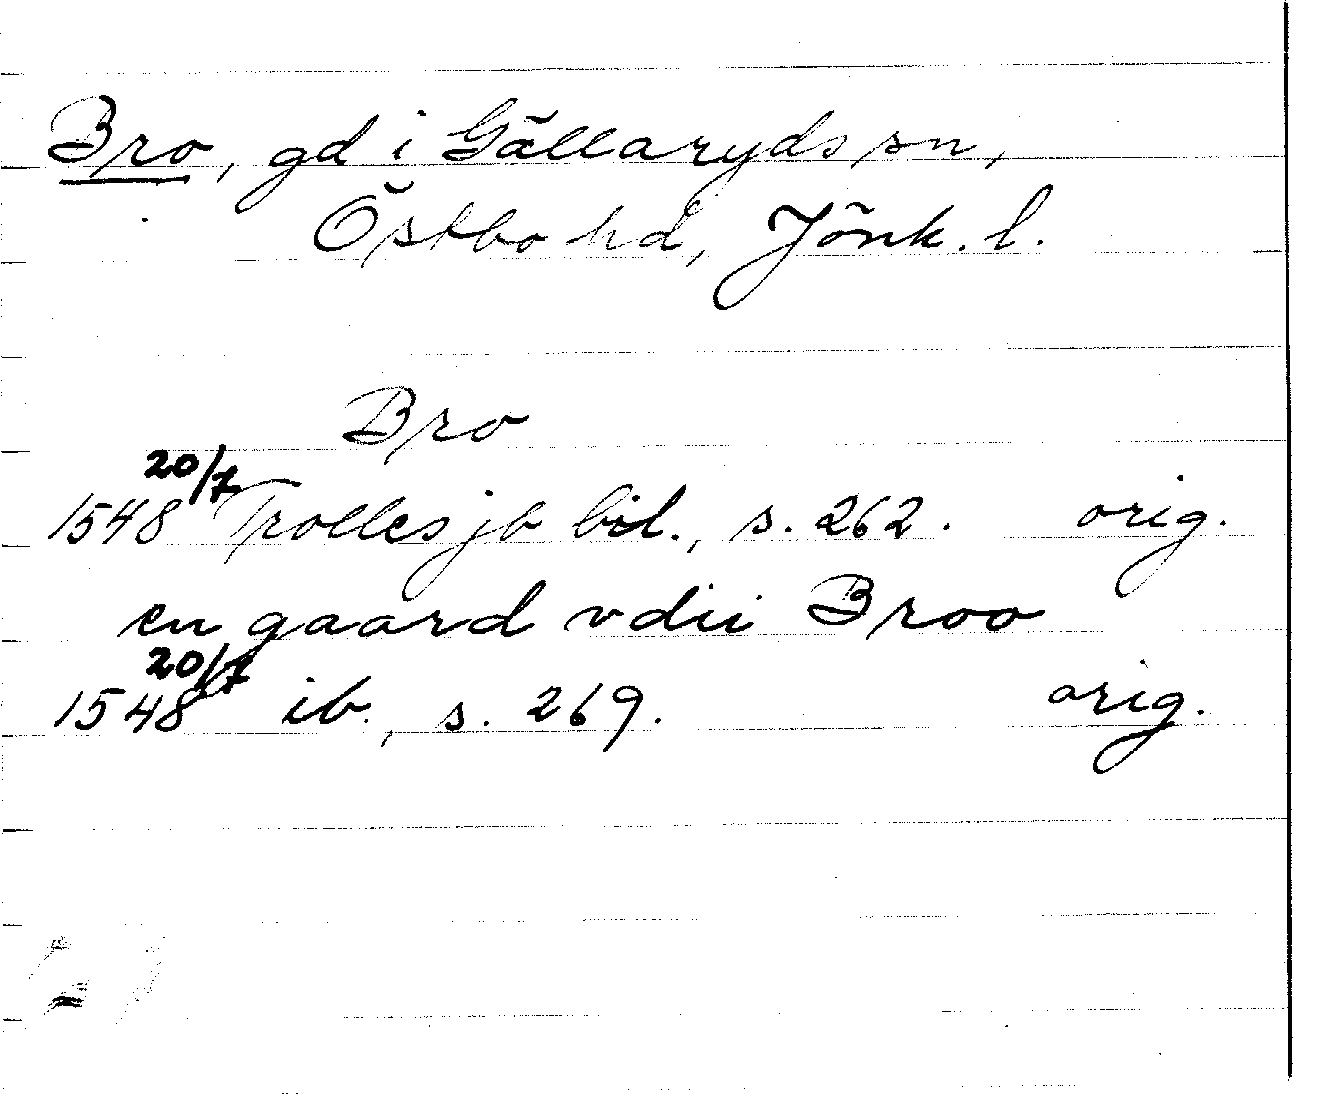 Bro, gd i Gällaryds sn,
Östbo hd, Jönk. l.
Bro
1548 20/7 Trolles jb bil., s. 262. orig.
en gaard vdii Broo
1548 20/7 ib., s. 269. orig.